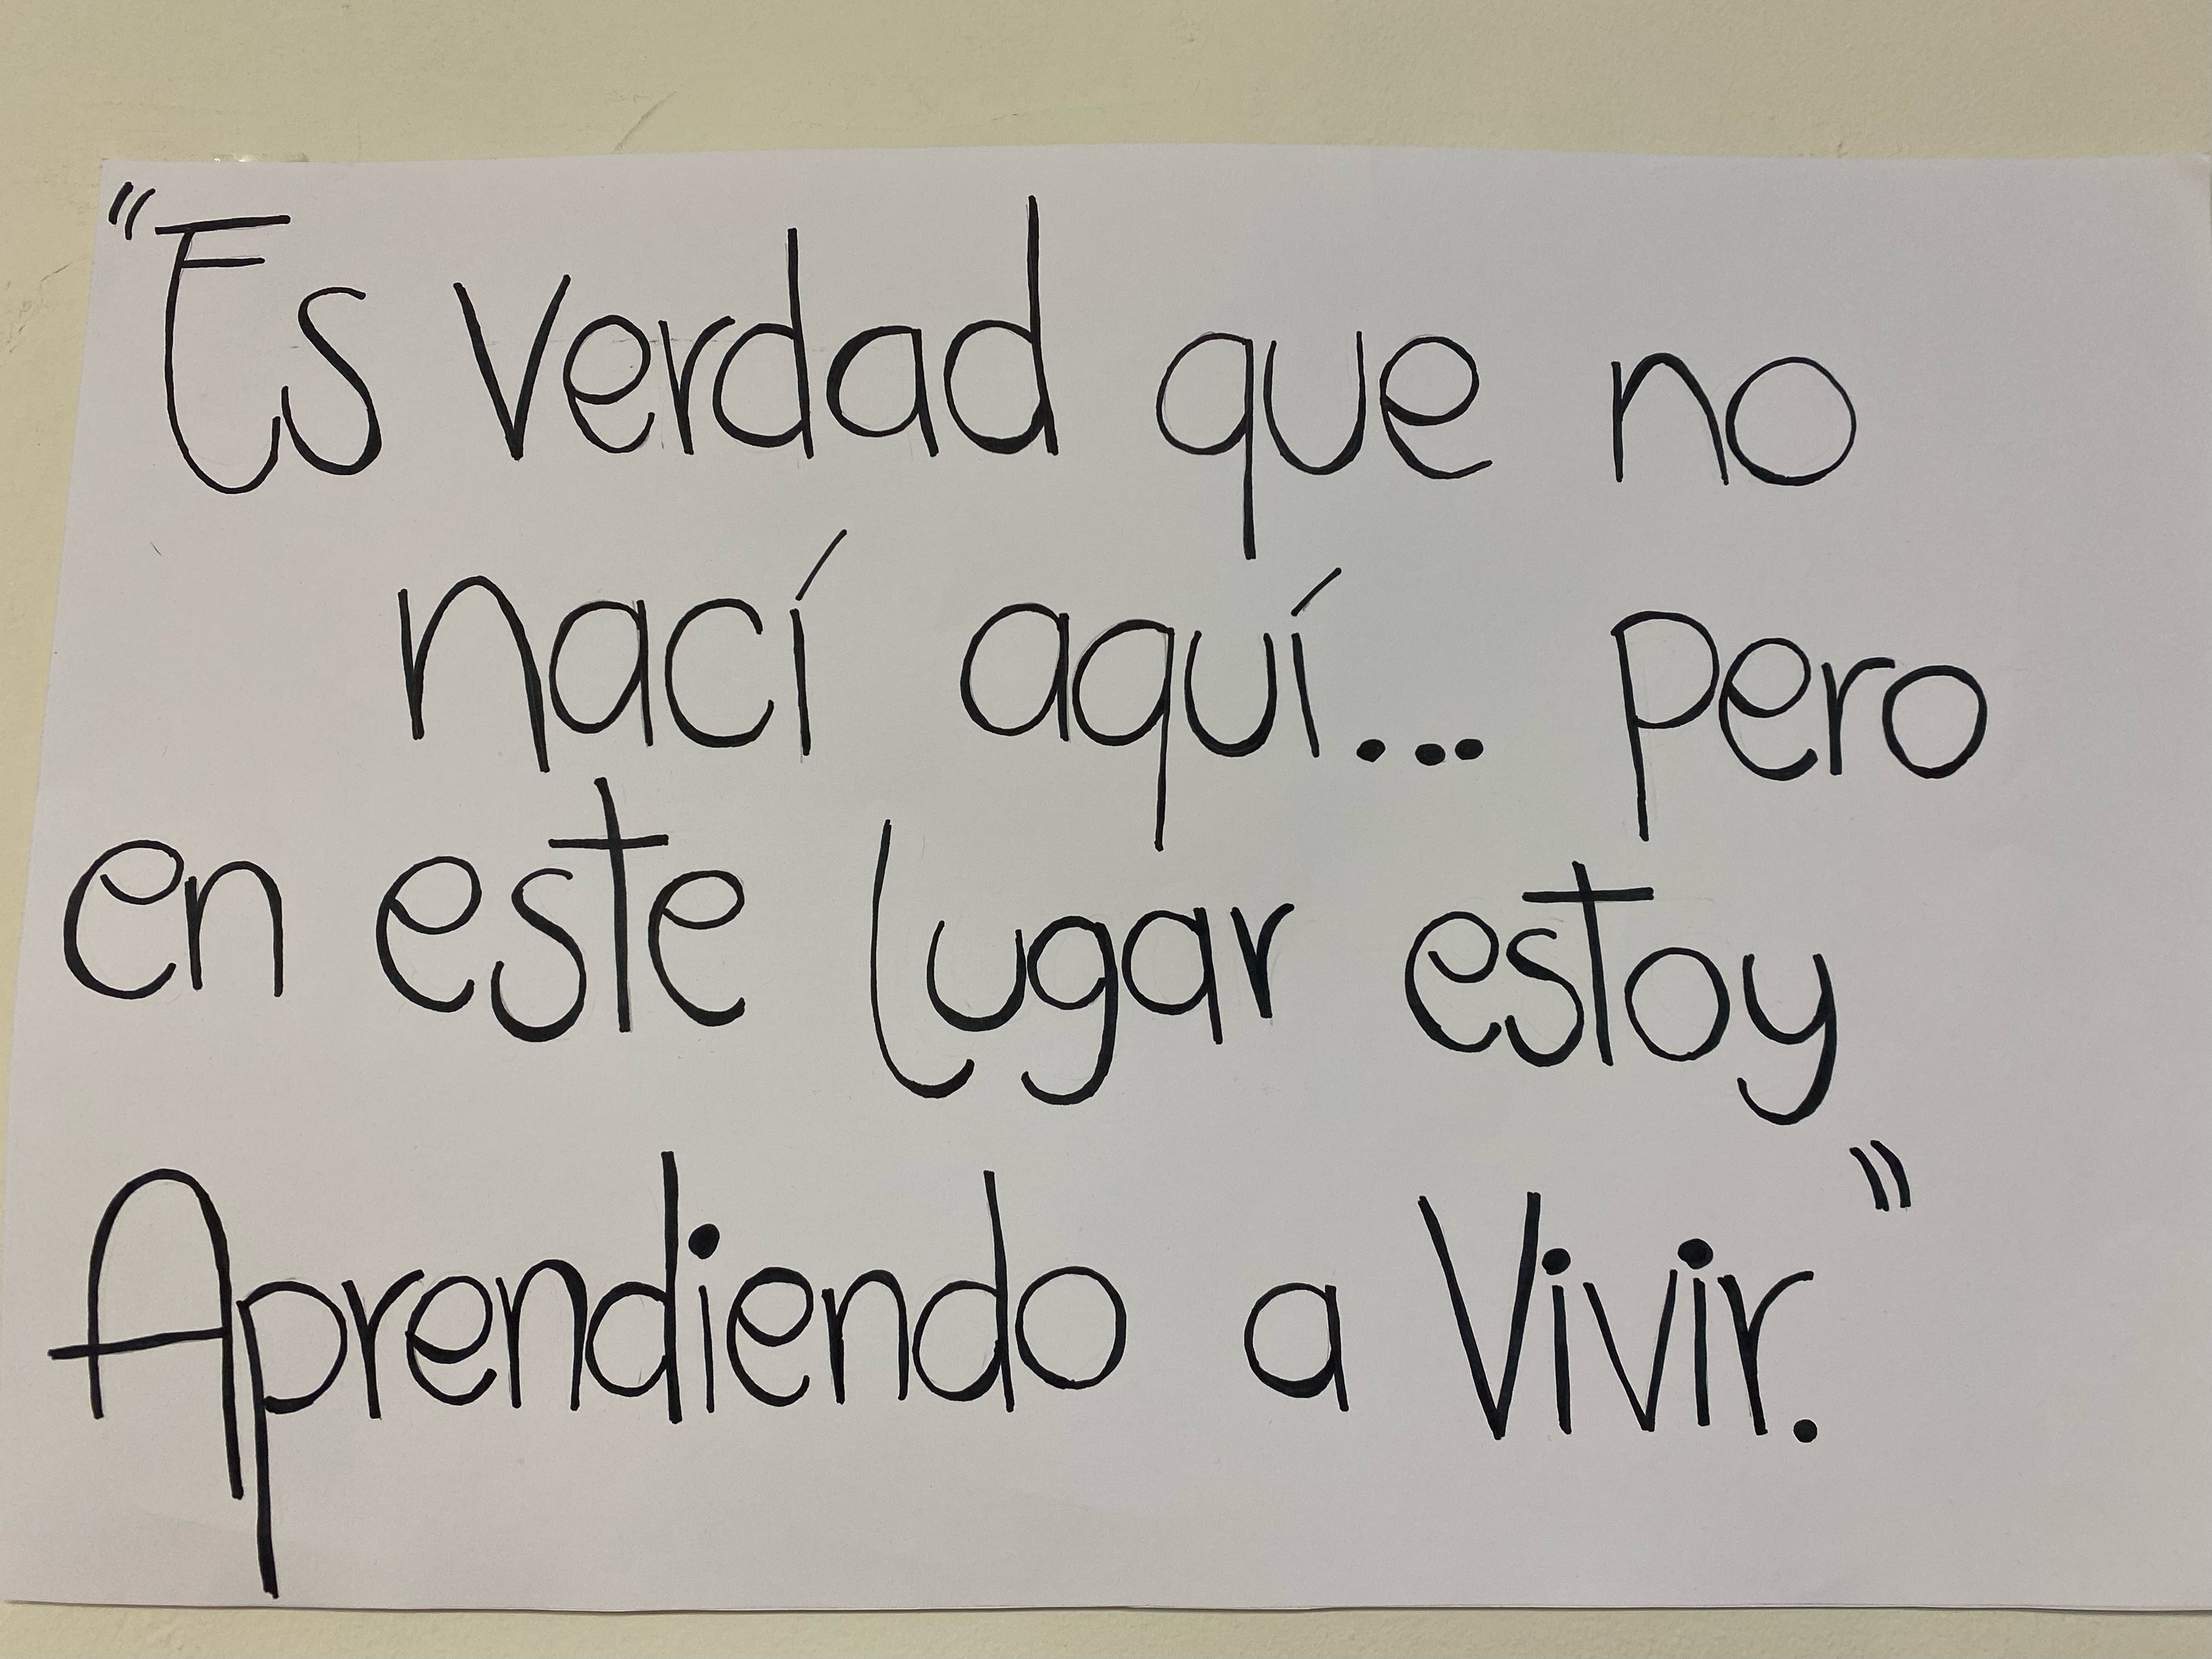 "Es verdad que no
nací aquí... pero
en este lugar estoy
Aprendiendo a Vivir."